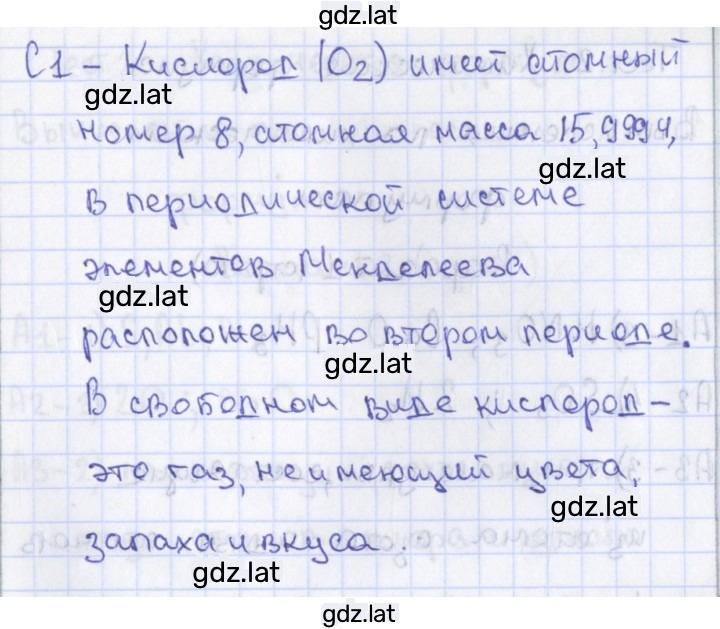 gdz.lat
С1 - Кислород (O₂) имеет атомный
gdz.lat
номер 8, атомная масса 15,9994,
gdz.lat
в периодической системе
элементов Менделеева
gdz.lat
расположен во втором периоде.
gdz.lat
В свободном виде кислород -
это газ, не имеющий цвета,
gdz.lat
запаха и вкуса.
gdz.lat
gdz.lat